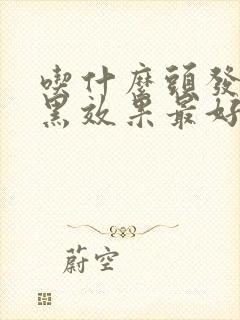 喫什麼頭發
黑效果最好
蔚空